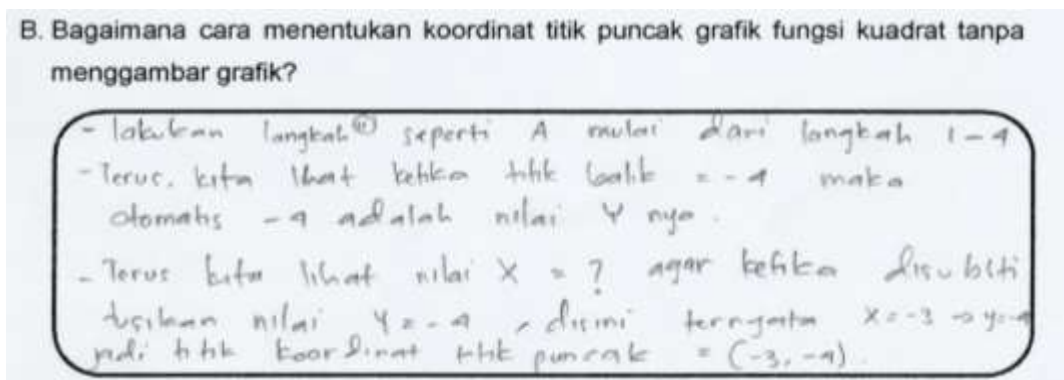 B. Bagaimana cara menentukan koordinat titik puncak grafik fungsi kuadrat tanpa
menggambar grafik?
- lakukan langkah② seperti A mulai dari langkah 1-4
- Terus, kita lihat ketika titik balik = -4 maka
otomatis -4 adalah nilai Y nya.
- Terus kita lihat nilai X = ? agar ketika disubsti
tusikan nilai Y = -4, disini ternyata X = -3 → y = -4
jadi titik koordinat titik puncak = (-3, -4).